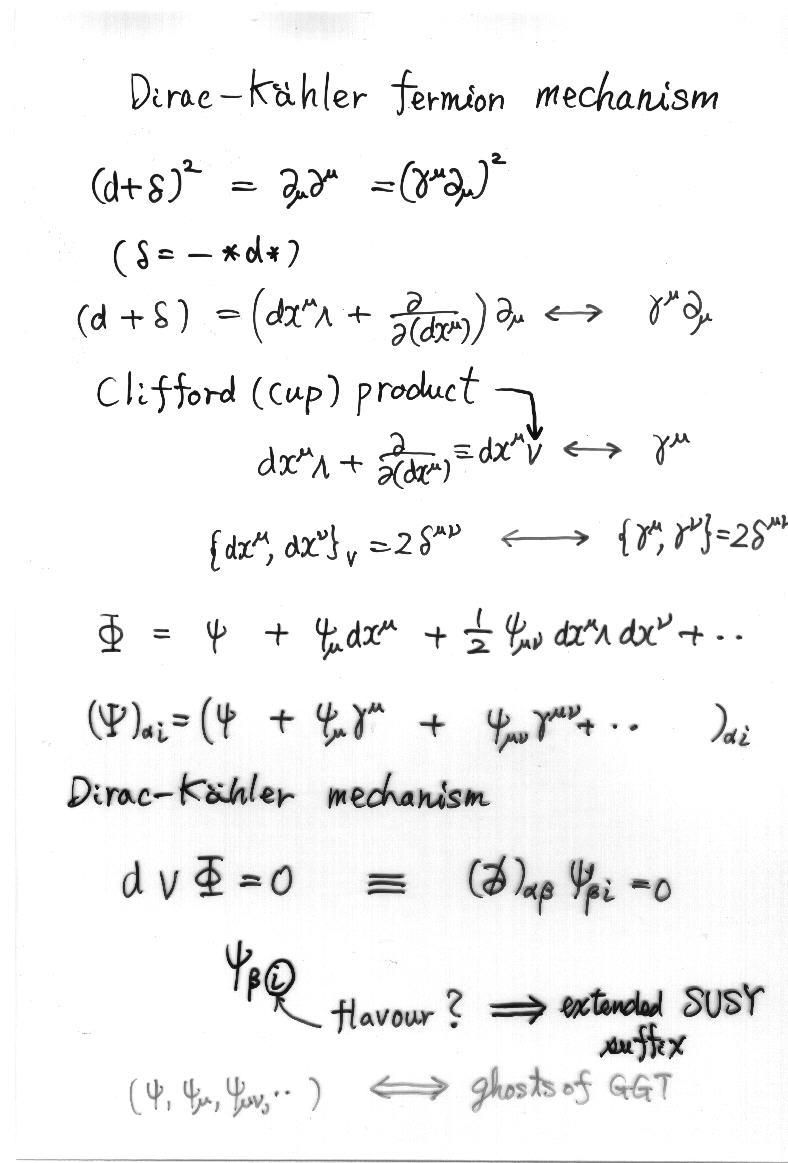 Dirac-Kähler fermion mechanism
(d+δ)² = ∂μ∂^μ = (γ^μ∂μ)²
(δ = - *d*)
(d + δ) = (dx^μ∧ + ∂/∂(dx^μ)) ∂μ ↔ γ^μ∂μ
Clifford (cup) product
dx^μ∧ + ∂/∂(dx^μ) ≡ dx^μ∨ ↔ γ^μ
{dx^μ, dx^ν}_∨ = 2δ^μν ↔ {γ^μ, γ^ν} = 2δ^μν
Φ = ψ + ψ_μ dx^μ + 1/2 ψ_μν dx^μ∧dx^ν + ··
(Ψ)_αi = (ψ + ψ_μ γ^μ + ψ_μν γ^μν + ·· )_αi
Dirac-Kähler mechanism
d ∨ Φ = 0 ≡ (∂̸)_αβ Ψ_βi = 0
Ψ_βi
flavour? ⇒ extended SUSY
suffix
(ψ, ψ_μ, ψ_μν, ··) ⇔ ghosts of GGT